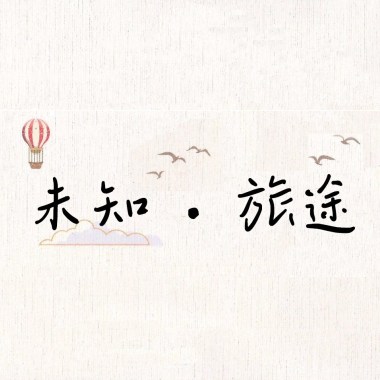 未知·旅途